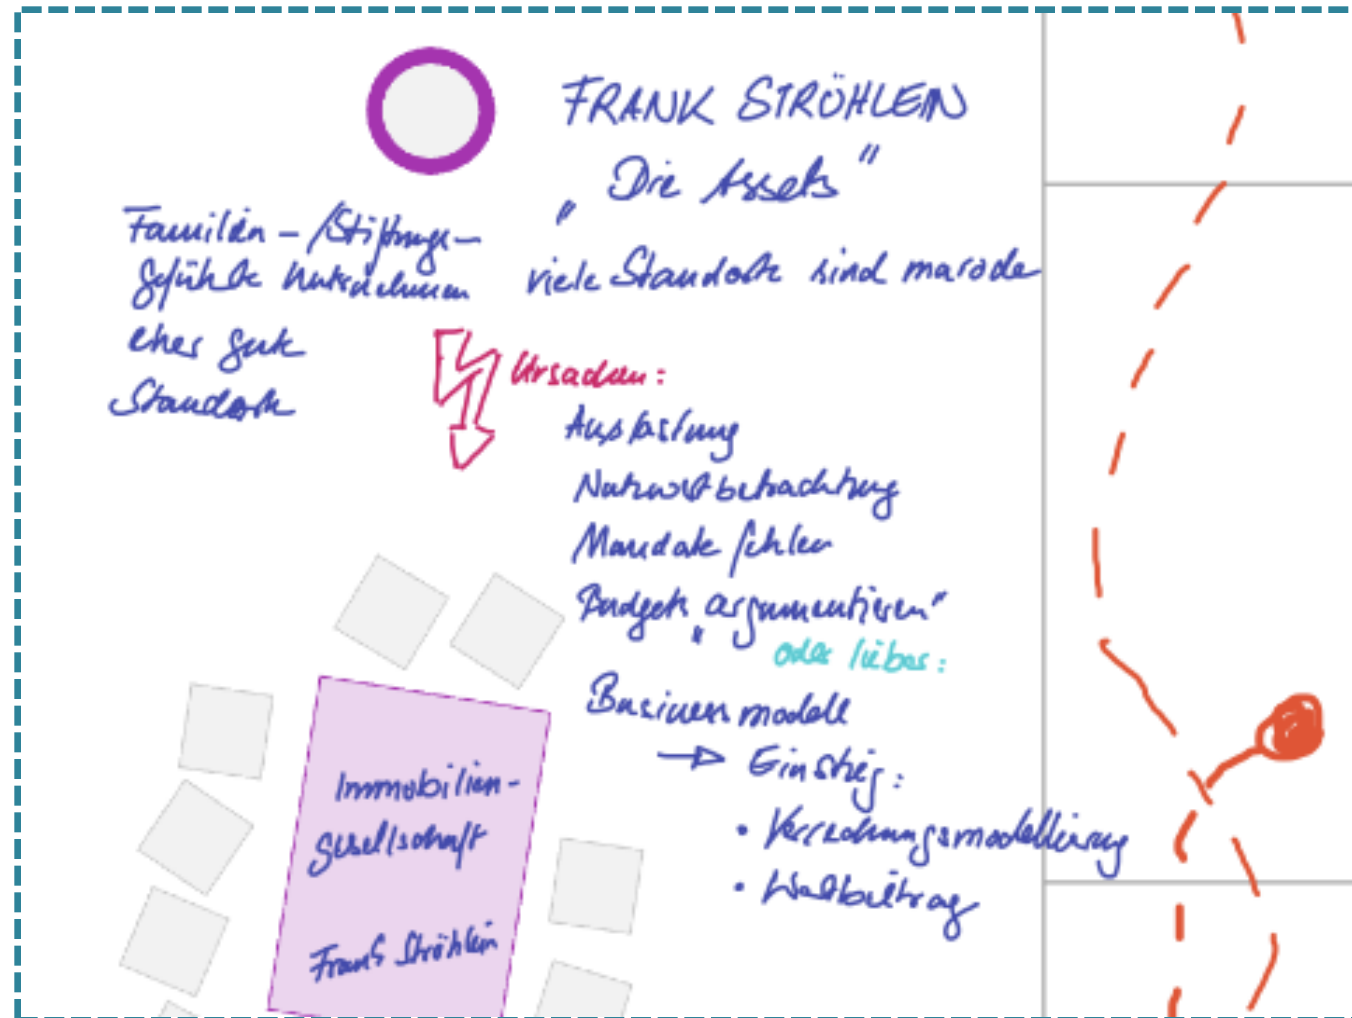 FRANK STRÖHLEIN
„Die Assets"
Familien-/Stiftungs-
geführte Unternehmen
eher gute
Standorte
viele Standorte sind marode
Ursachen:
Auslastung
Nutzwertbetrachtung
Mandate fehlen
Budgets „argumentieren"
oder lieber:
Businessmodell
→ Einstieg:
• Verrechnungsmodellierung
• Wertbeitrag
Immobilien-
gesellschaft
Frank Ströhlein